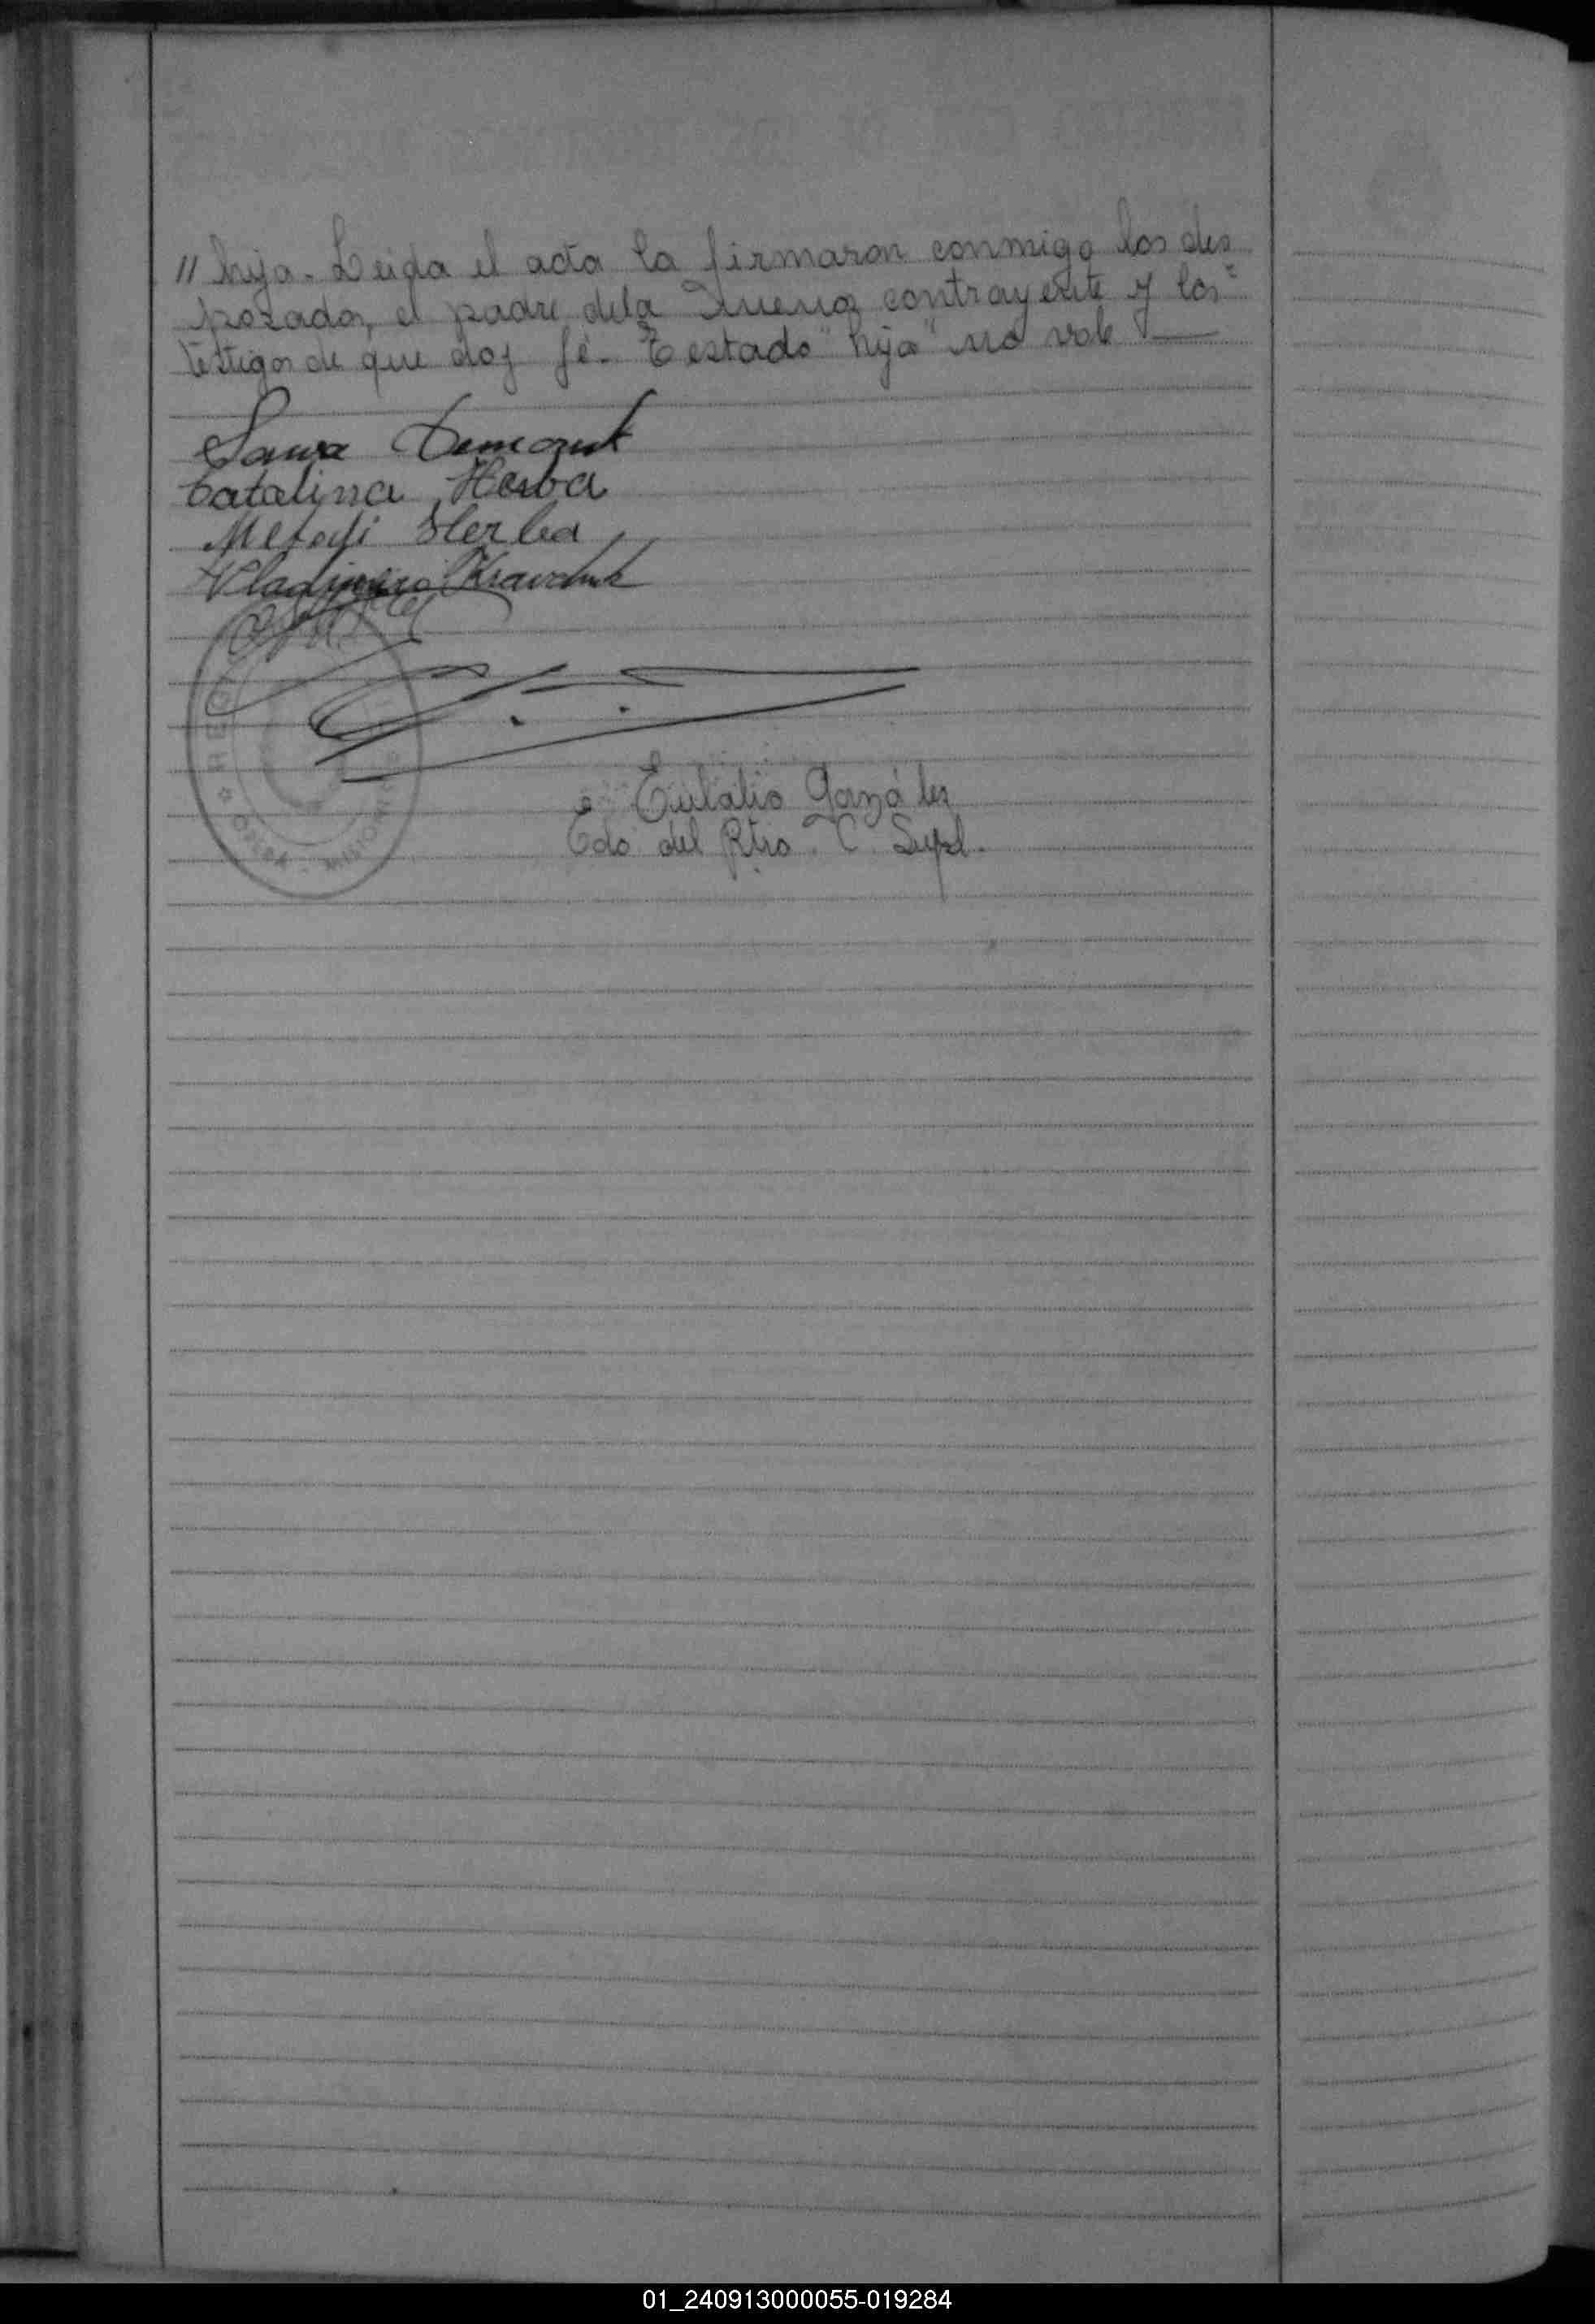 // hija. Leida el acta la firmaron conmigo los des
posados, el padre dela contrayente y los=
testigos de que doy fé. Testado "hija" no vale —
Sawa
Catalina Herba
Metodi Herba
Vladimiro Krawchuk
Eulalio González
Edo del Rtro. C. Supl.
REGI
MISIONES
01_240913000055-019284